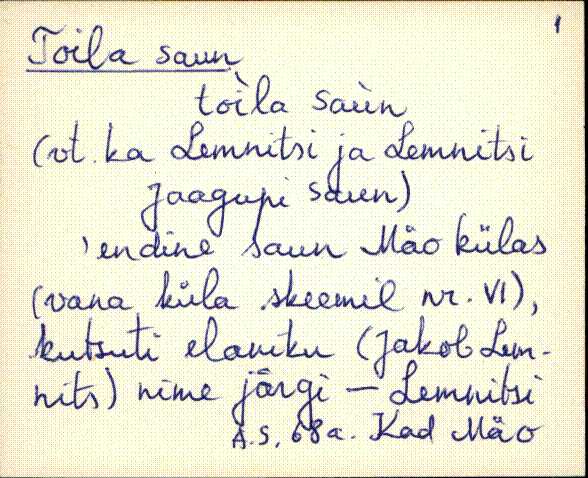 1
Toila saun
toìla saùn
(vt. ka Lemnitsi ja Lemnitsi
Jaagupi saun)
'endine saun Mäo külas
(vana küla skeemil nr. VI),
kutsuti elaniku (Jakob Lem-
nits) nime järgi — Lemnitsi
A.S, 68a. Kad Mäo